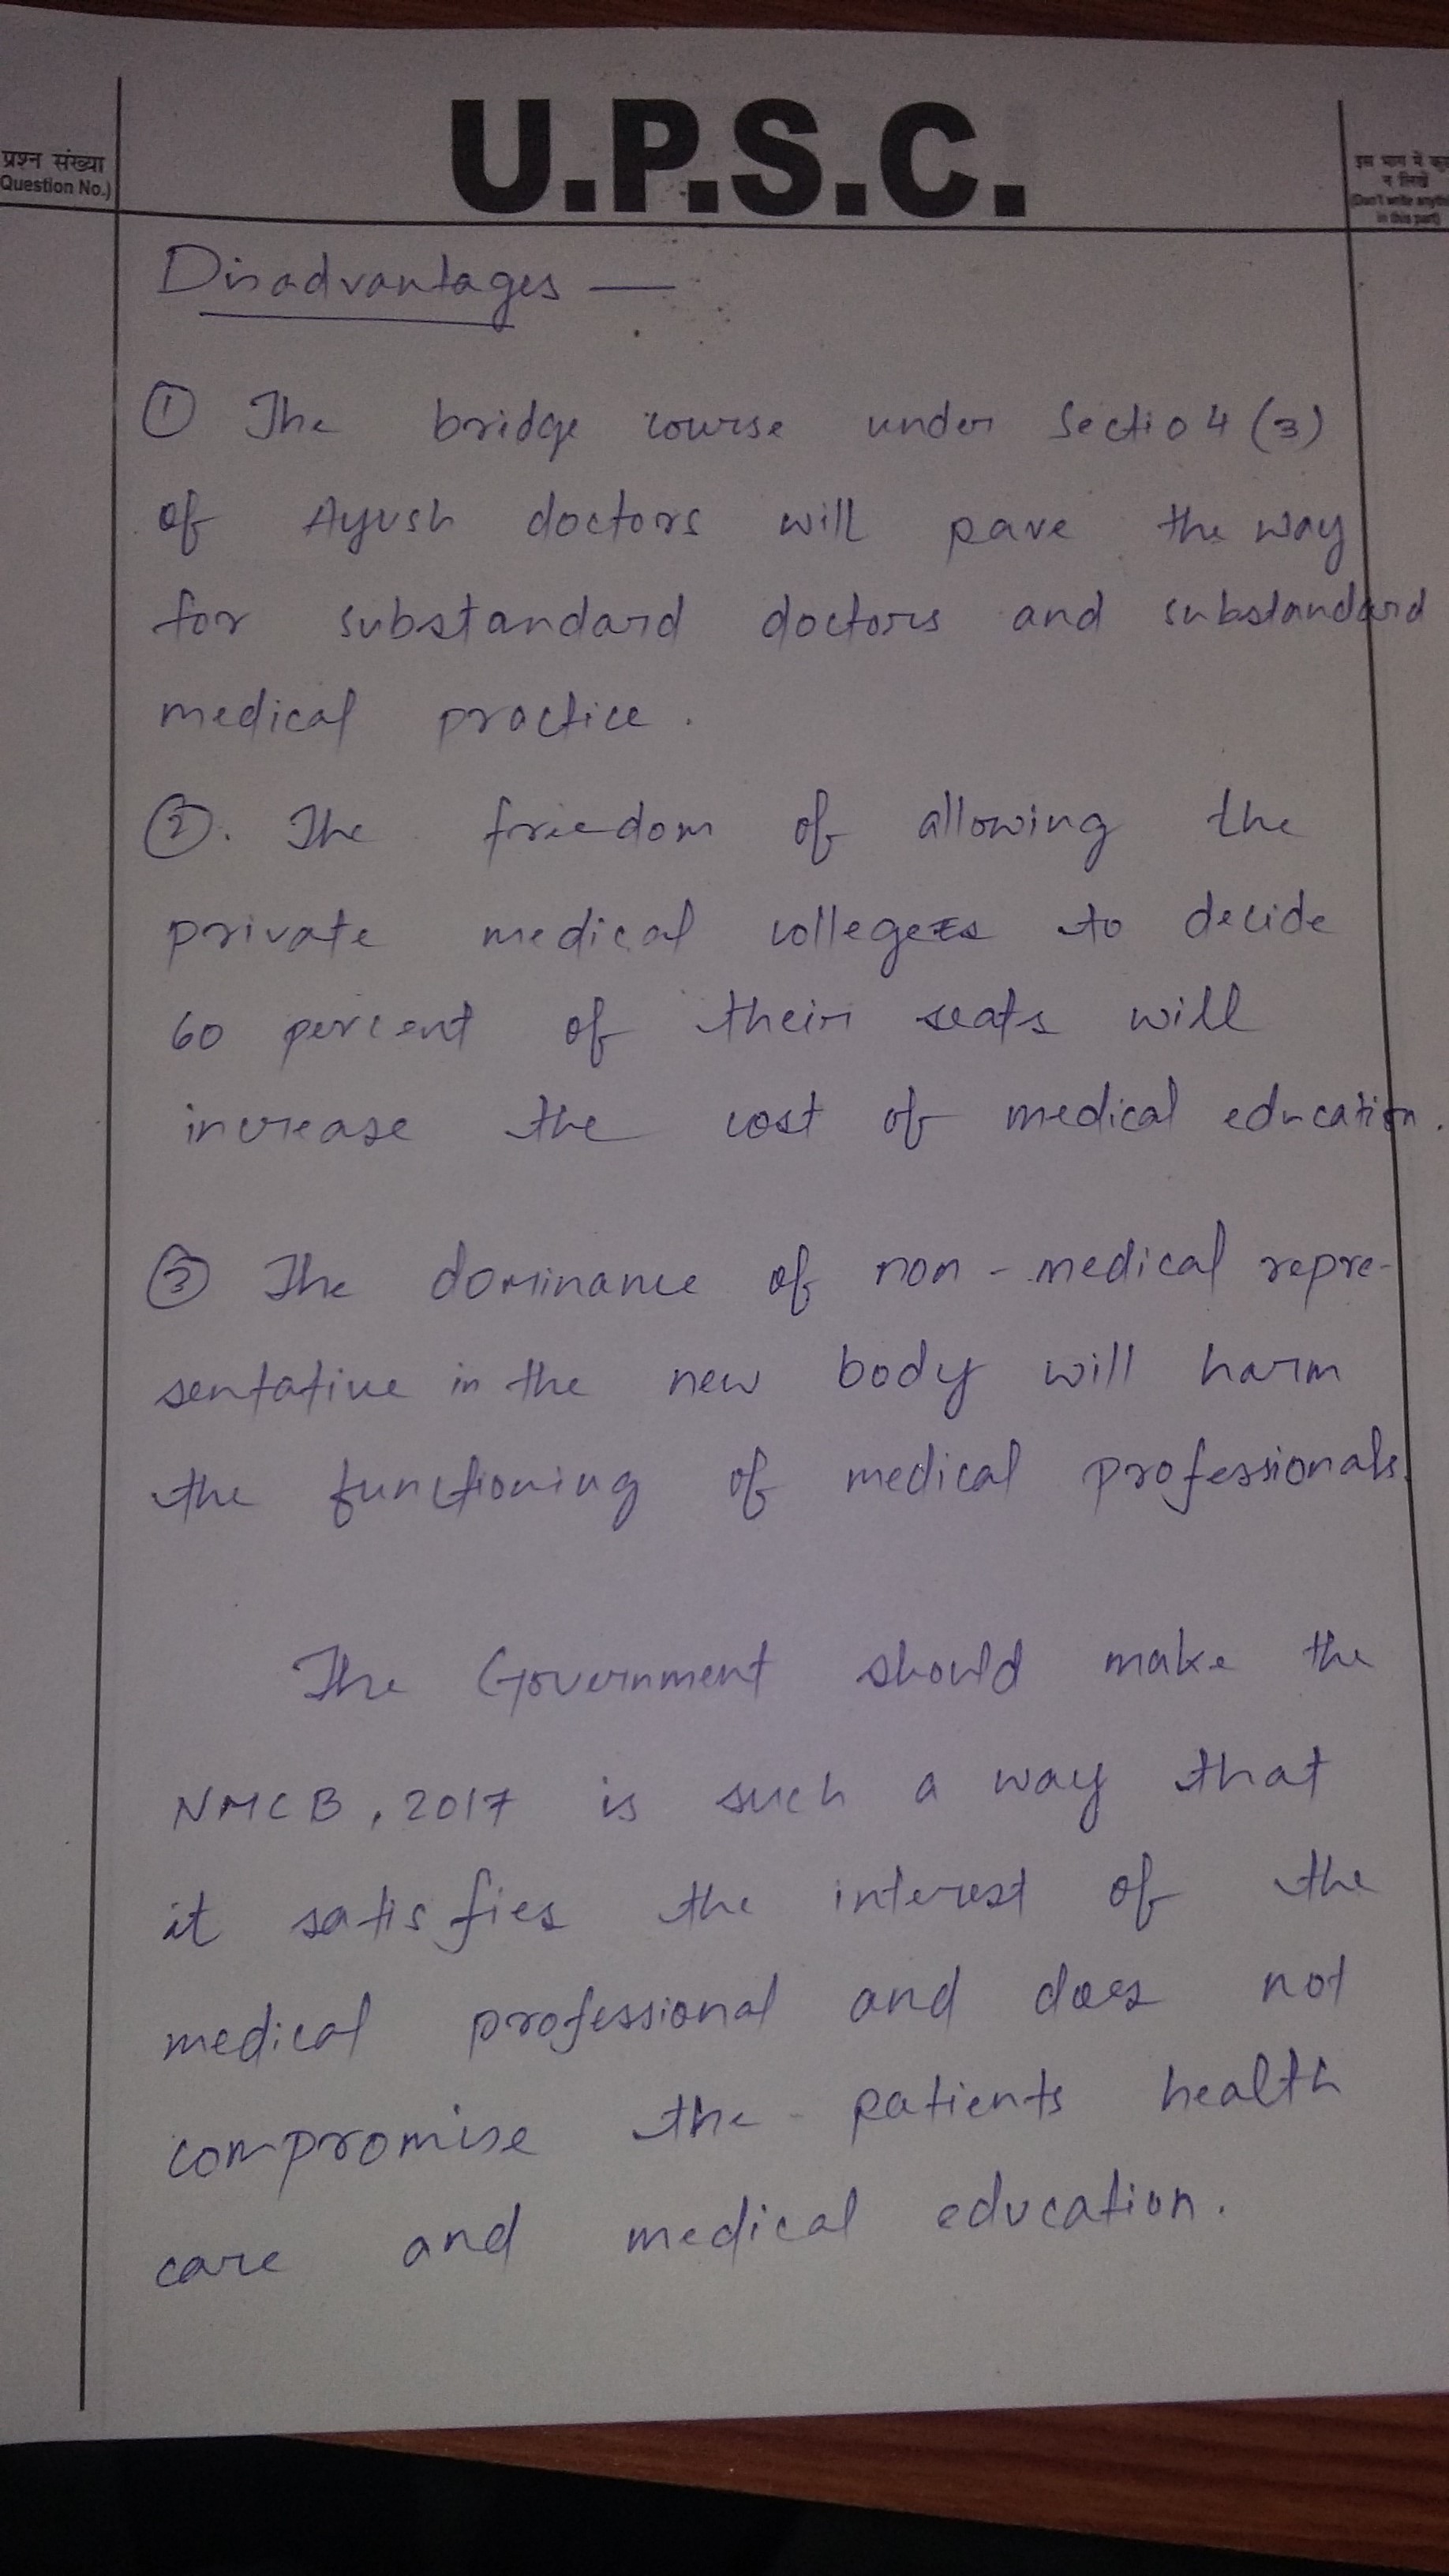 U.P.S.C.
प्रश्न संख्या
(Question No.)
इस भाग में
न लिखें
(Don't write
in this part)
Disadvantages —
① The bridge course under Sectio 4 (3)
of Ayush doctors will pave the way
for substandard doctors and substandard
medical practice.
②. The freedom of allowing the
private medical colleges to decide
60 percent of their seats will
increase the cost of medical education.
③ The dominance of non-medical repre-
sentative in the new body will harm
the functioning of medical professionals.
The Government should make the
NMCB, 2017 is such a way that
it satisfies the interest of the
medical professional and does not
compromise the patients health
care and medical education.